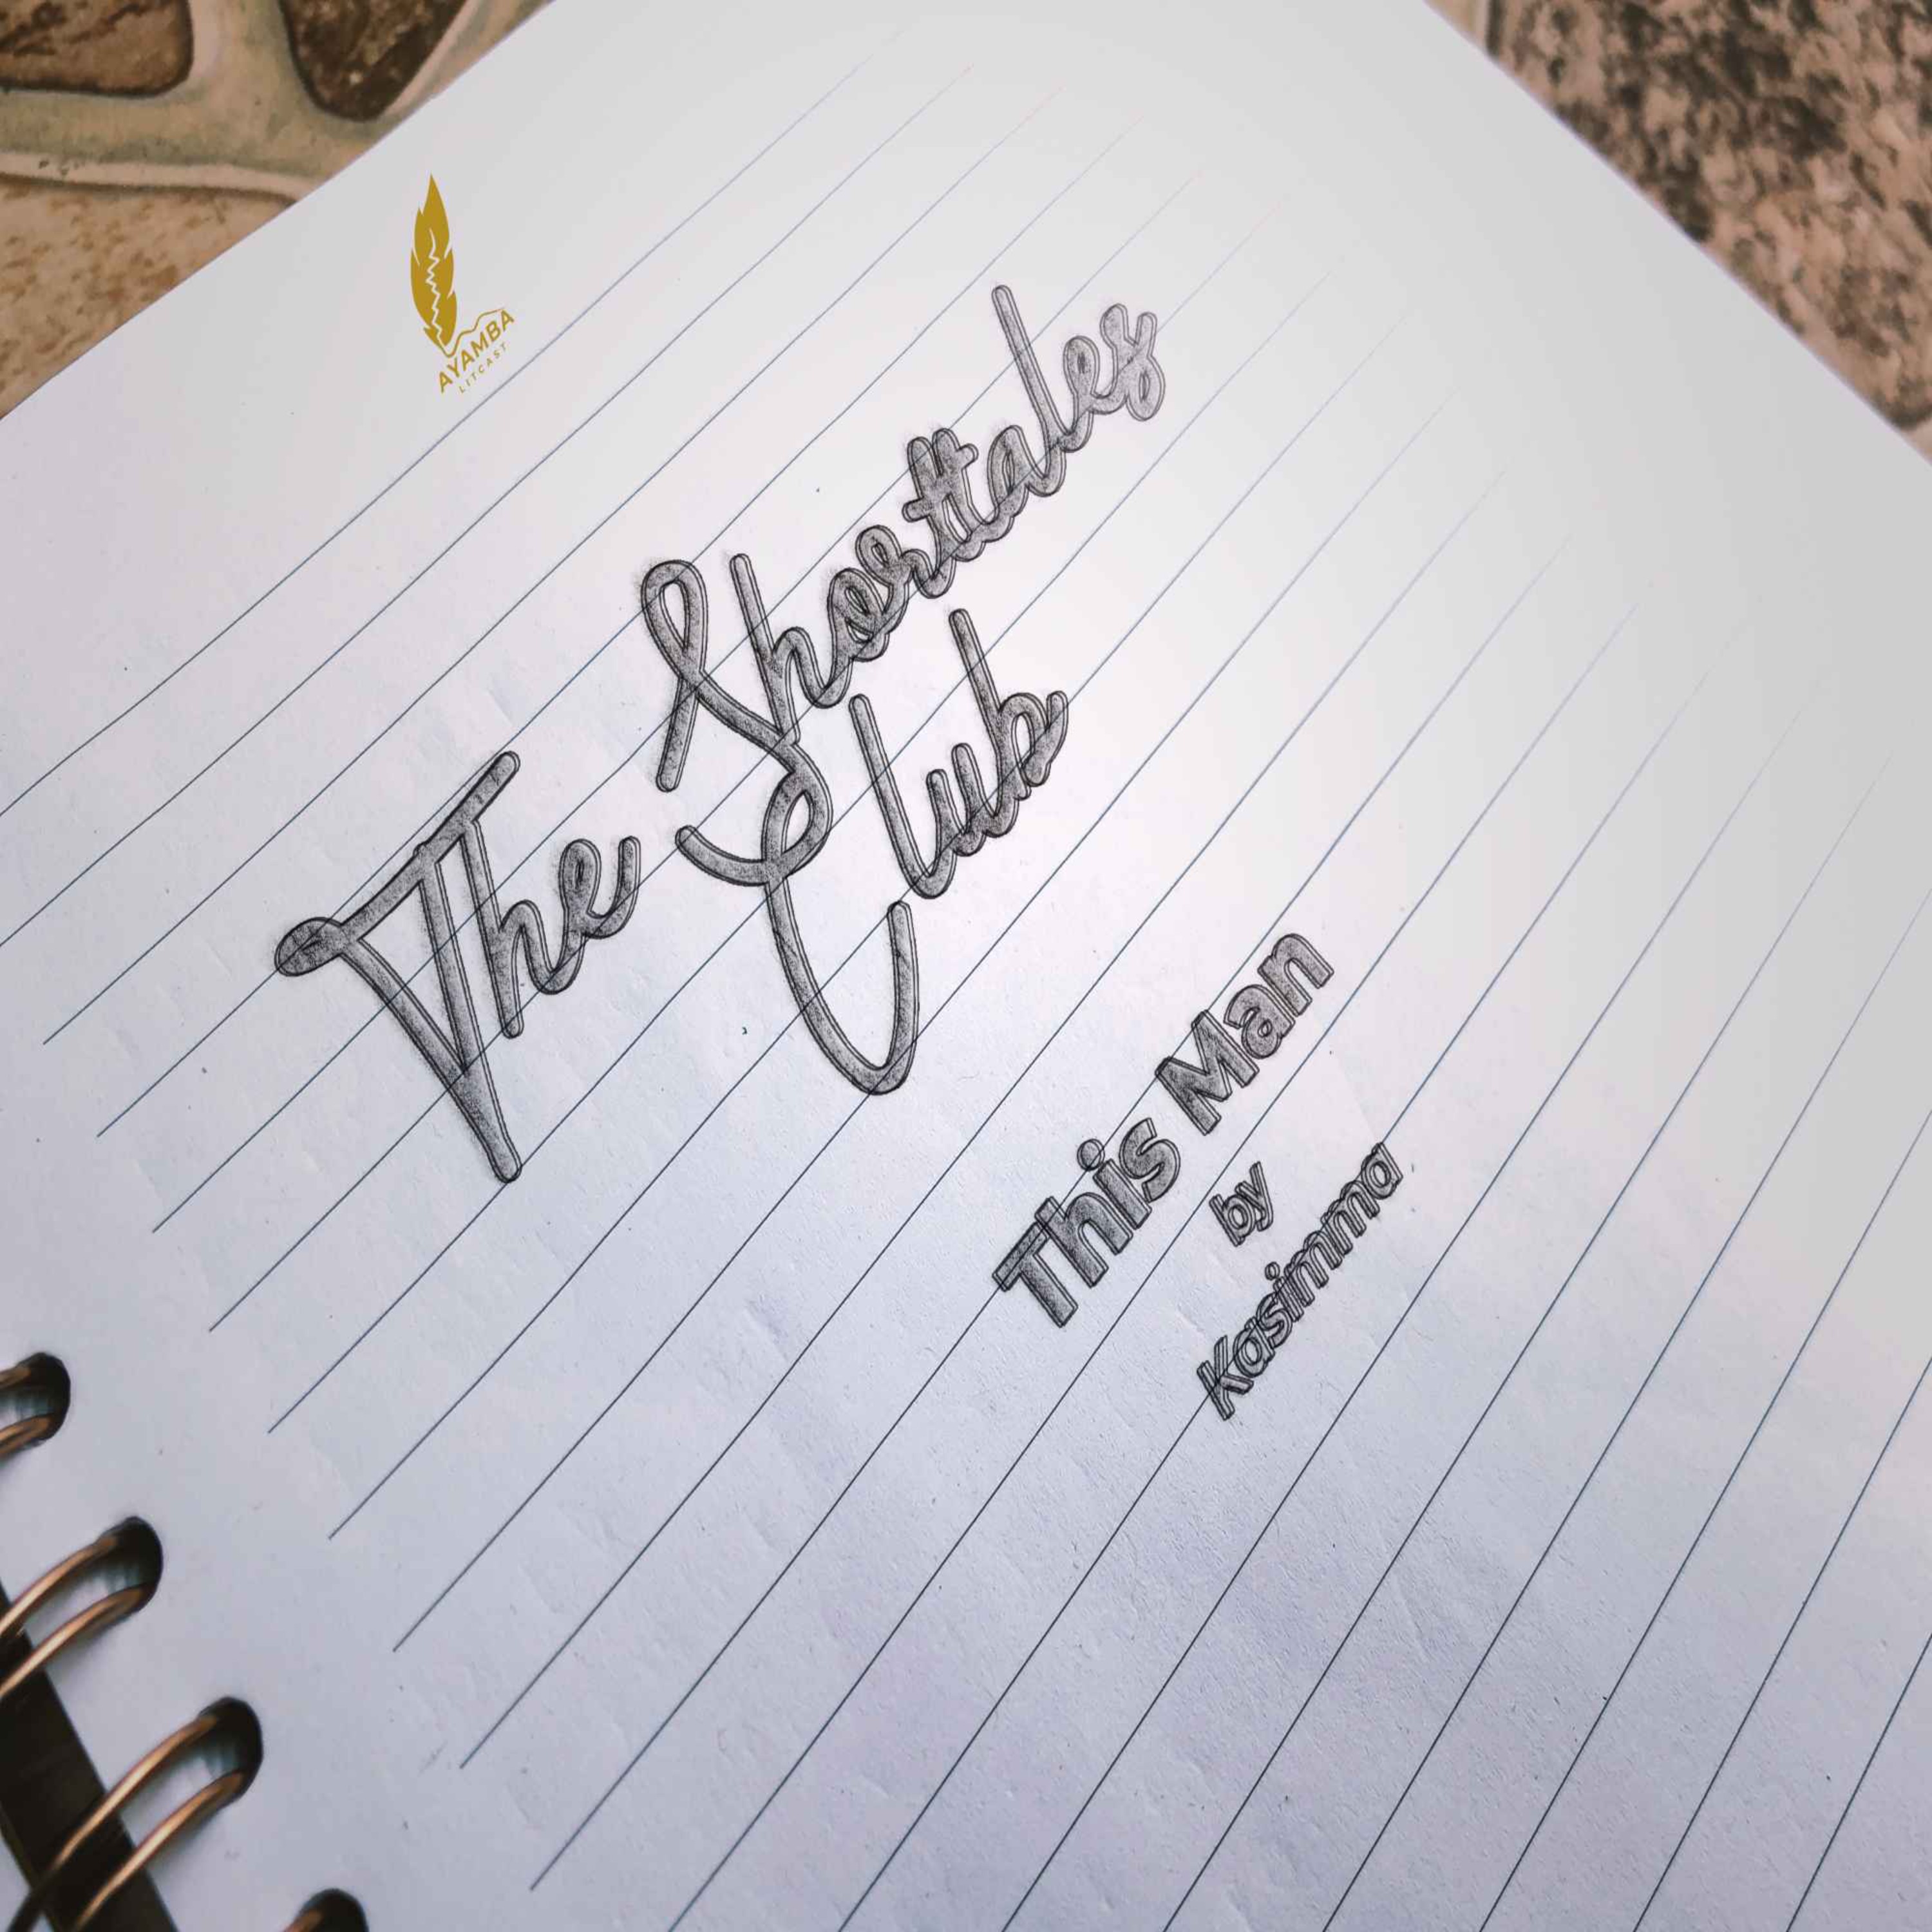 AYAMBA
LITCAST
The Shorttales
Club
This Man
by
Kasimma